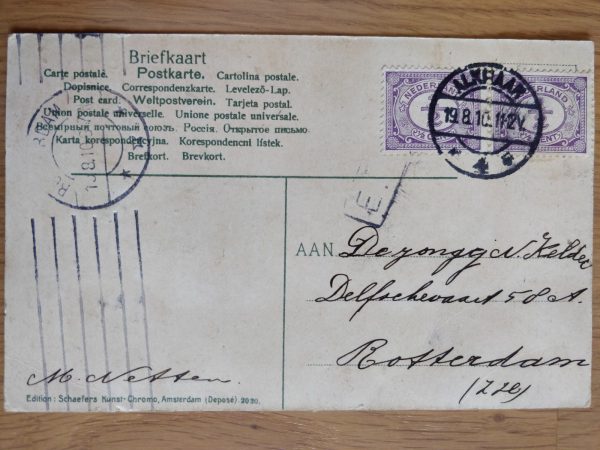 Briefkaart
Carte postale. Postkarte. Cartolina postale.
Dopisnice. Correspondenzkarte. Levelező-Lap.
Post card. Weltpostverein. Tarjeta postal.
Union postale universelle. Unione postale universale.
Всемірный почтовый союзъ. Россія. Открытое письмо.
Karta korespondencyjna. Korespondenční lístek.
Brefkort. Brevkort.
ALKMAAR
19.8.10. 11-12V
4
NEDERLAND
CENT
E
AAN
N. Kelder
Delfschevaart 58 A.
Rotterdam
M. Netten
Edition: Schaefers Kunst-Chromo, Amsterdam (Deposé) 2020.